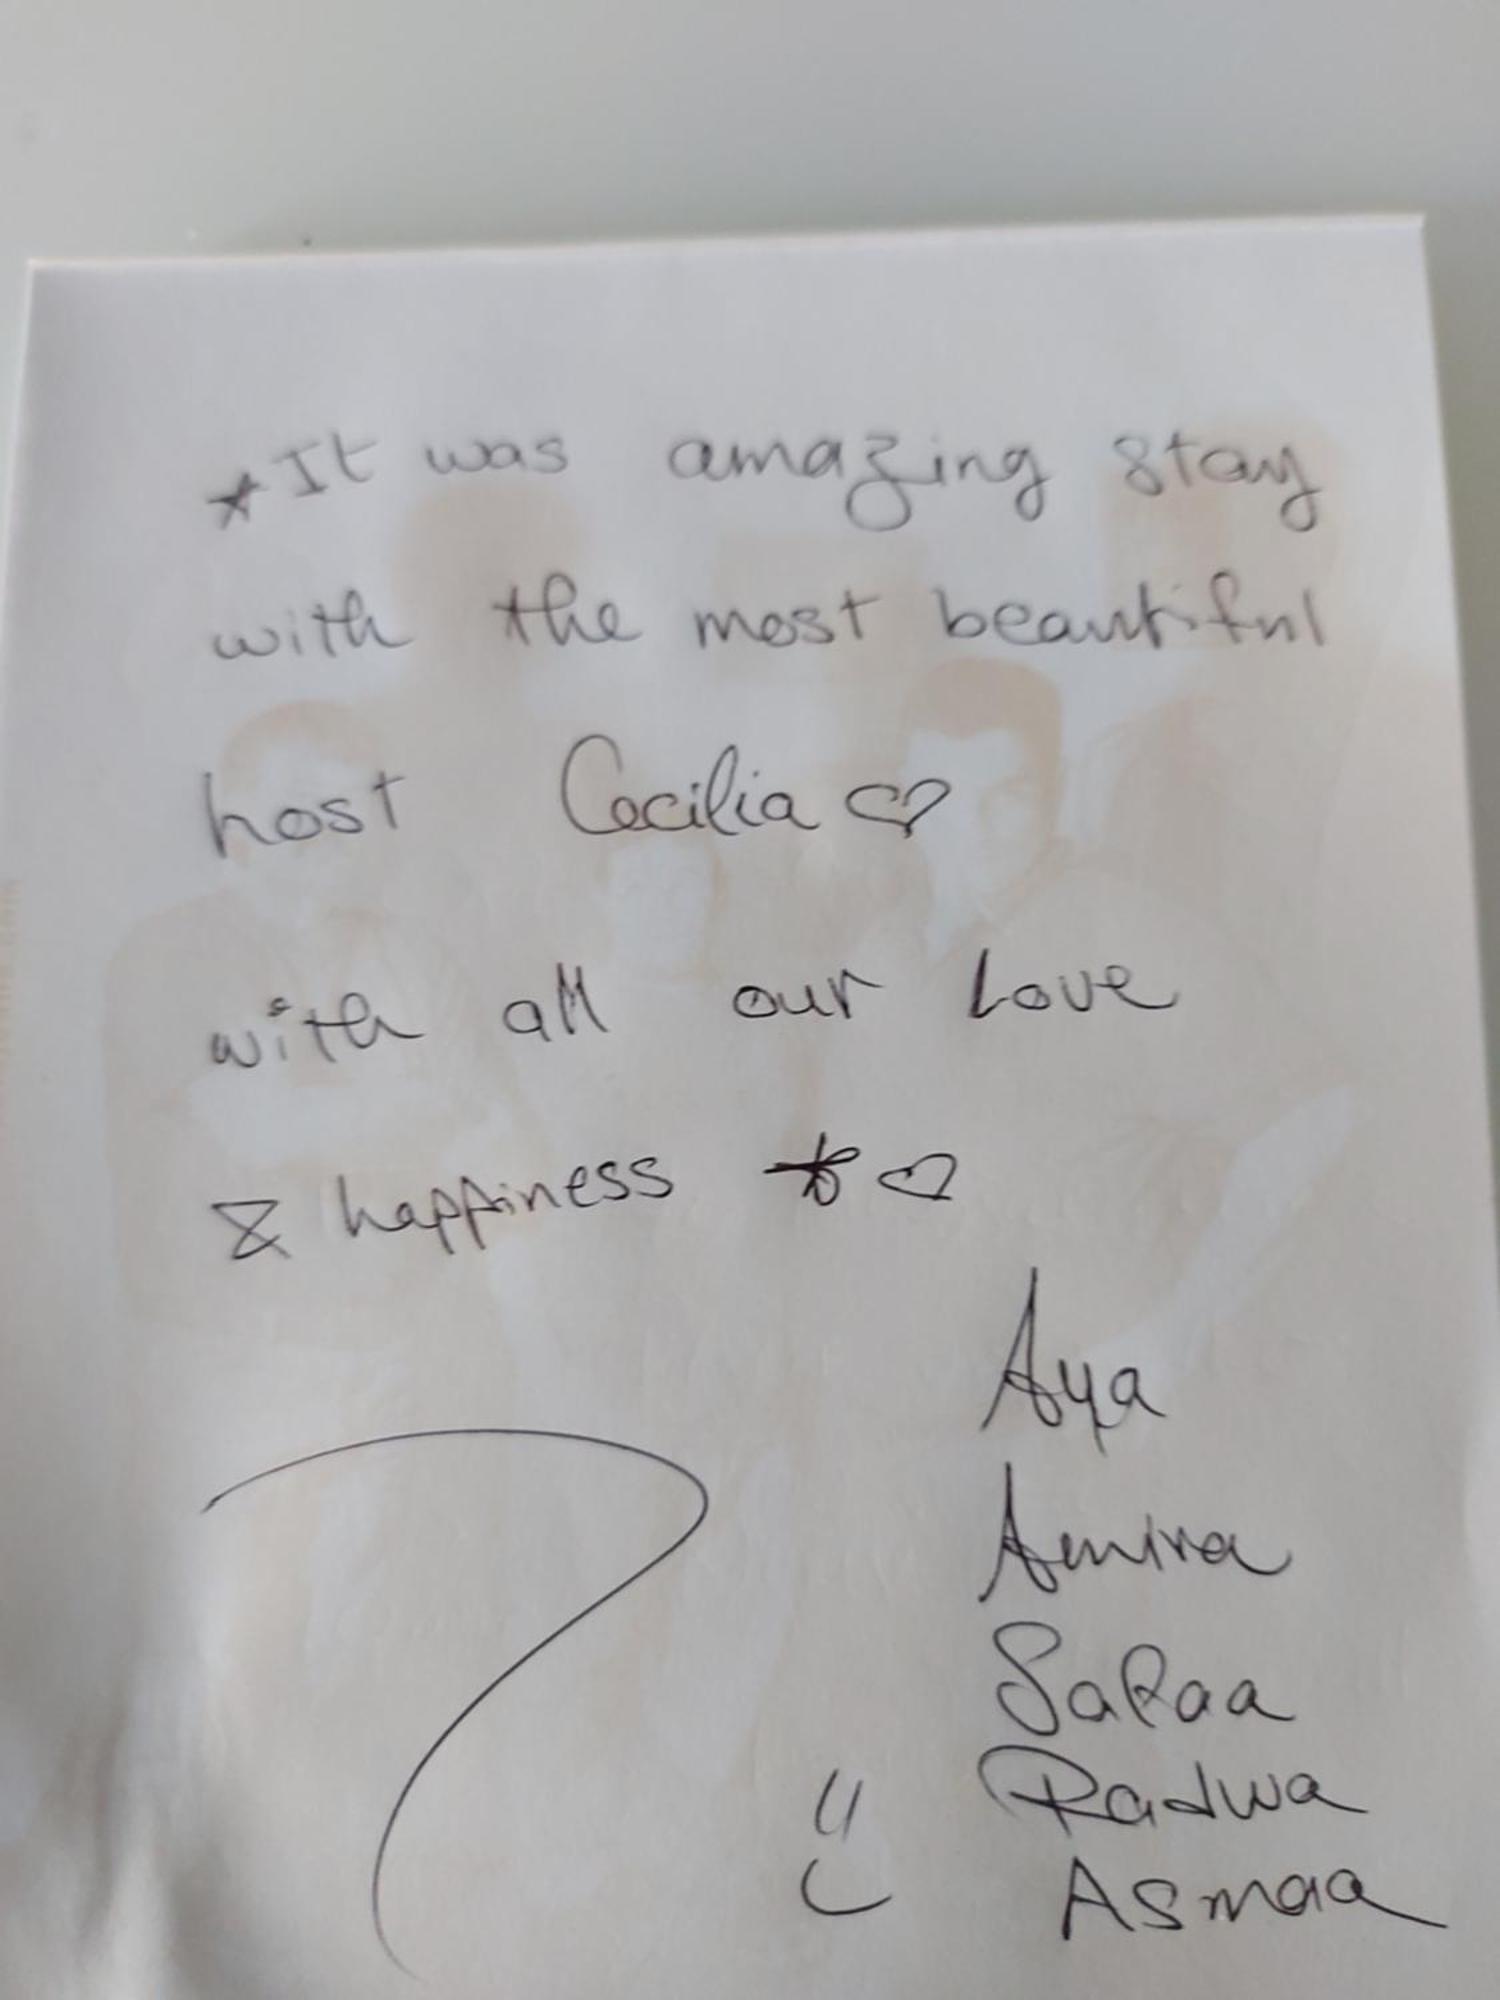 *It was amazing stay
with the most beautiful
host Cecilia ♡
with all our Love
& happiness * ♡
Aya
Amira
SaRaa
Radwa
Asmaa